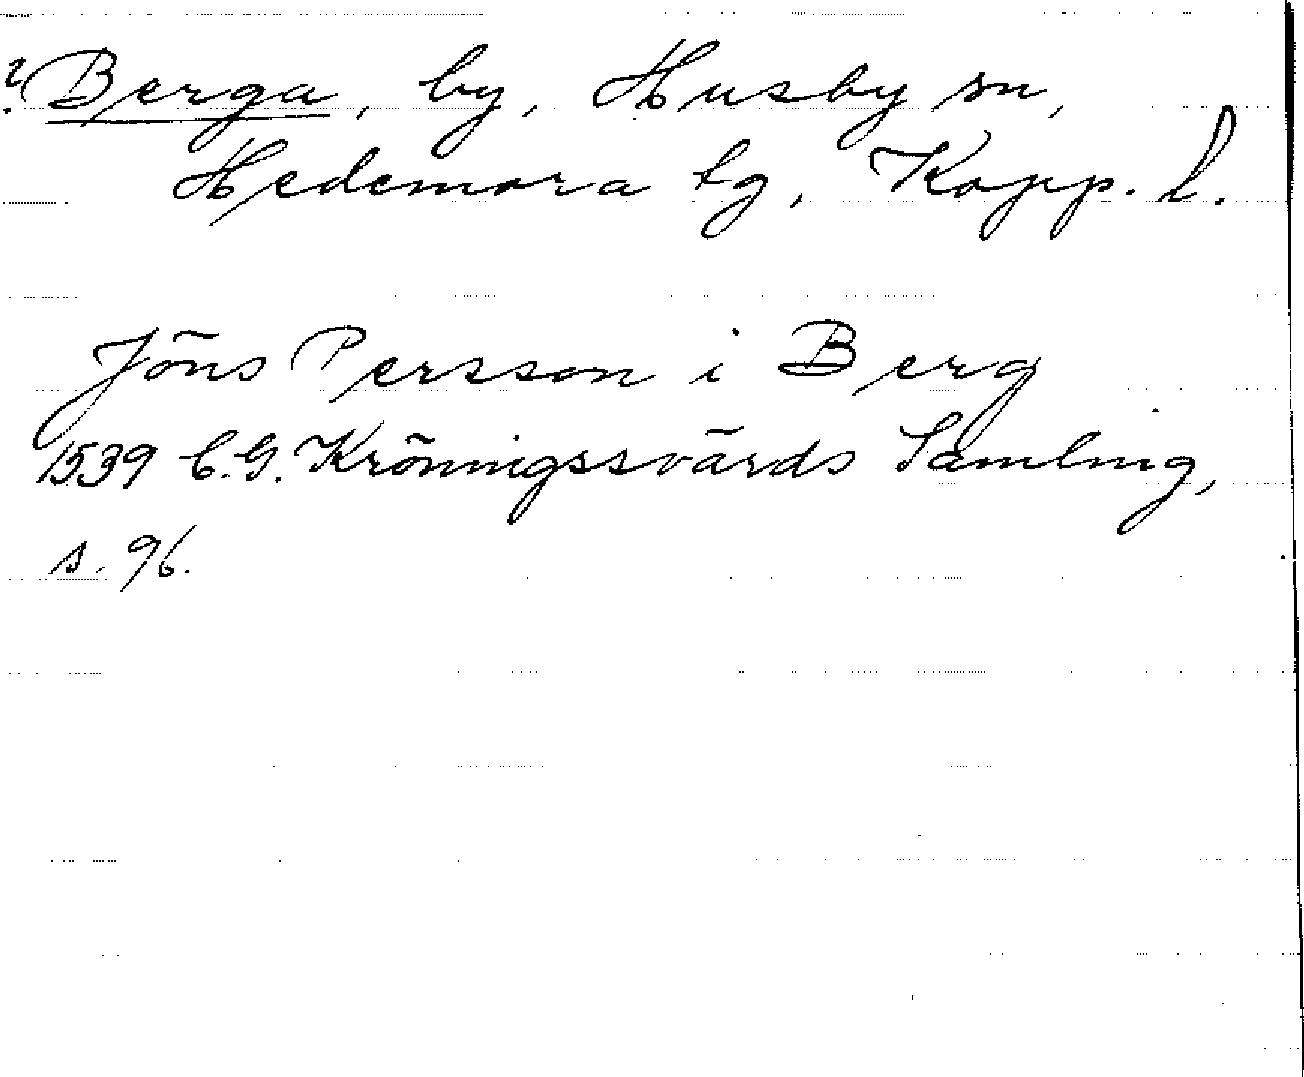 ? Berga, by, Husby sn,
Hedemora tg, Kopp. l.
Jöns Persson i Berg
1539 C.G. Kröningssvärds Samling,
s. 96.